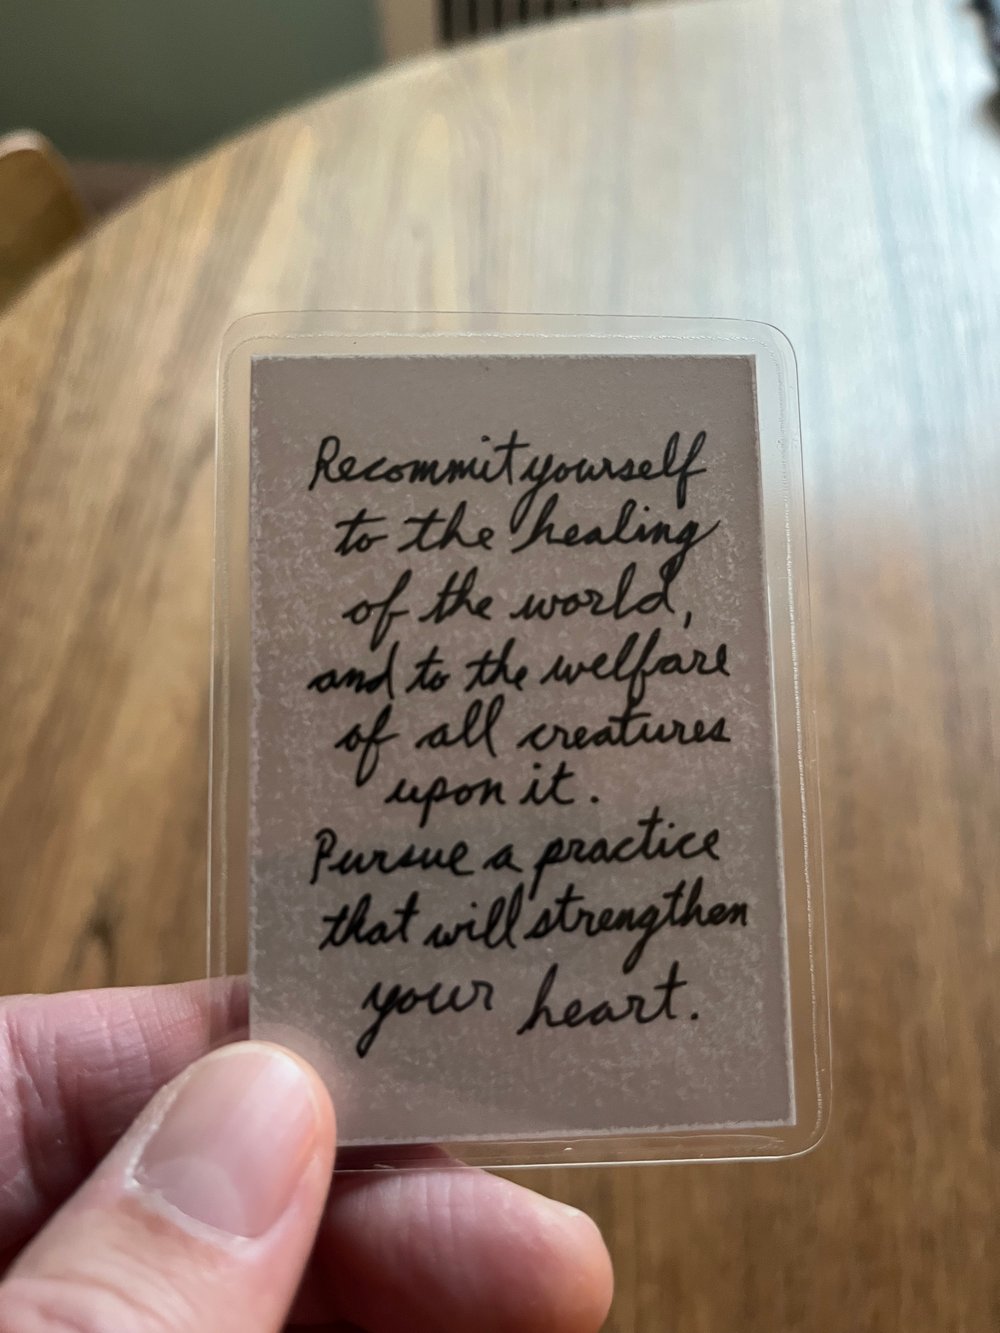 Recommit yourself
to the healing
of the world,
and to the welfare
of all creatures
upon it.
Pursue a practice
that will strengthen
your heart.